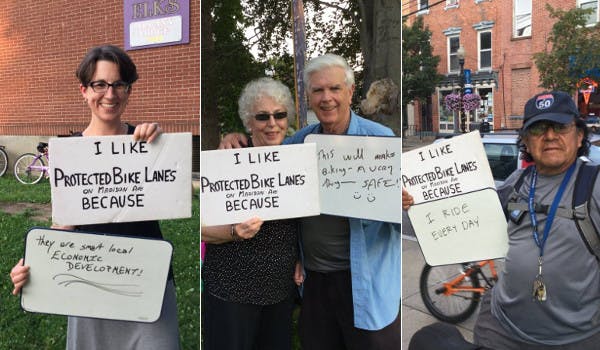 ELKS
I LIKE
PROTECTED BIKE LANES
ON MADISON AVE
BECAUSE
they are smart local
ECONOMIC
DEVELOPMENT!
I LIKE
PROTECTED BIKE LANES
ON MADISON AVE
BECAUSE
This will make
Biking - A
SAFE!!
50
I LIKE
PROTECTED BIKE LANES
ON MADISON AVE
BECAUSE
I RIDE
EVERY DAY